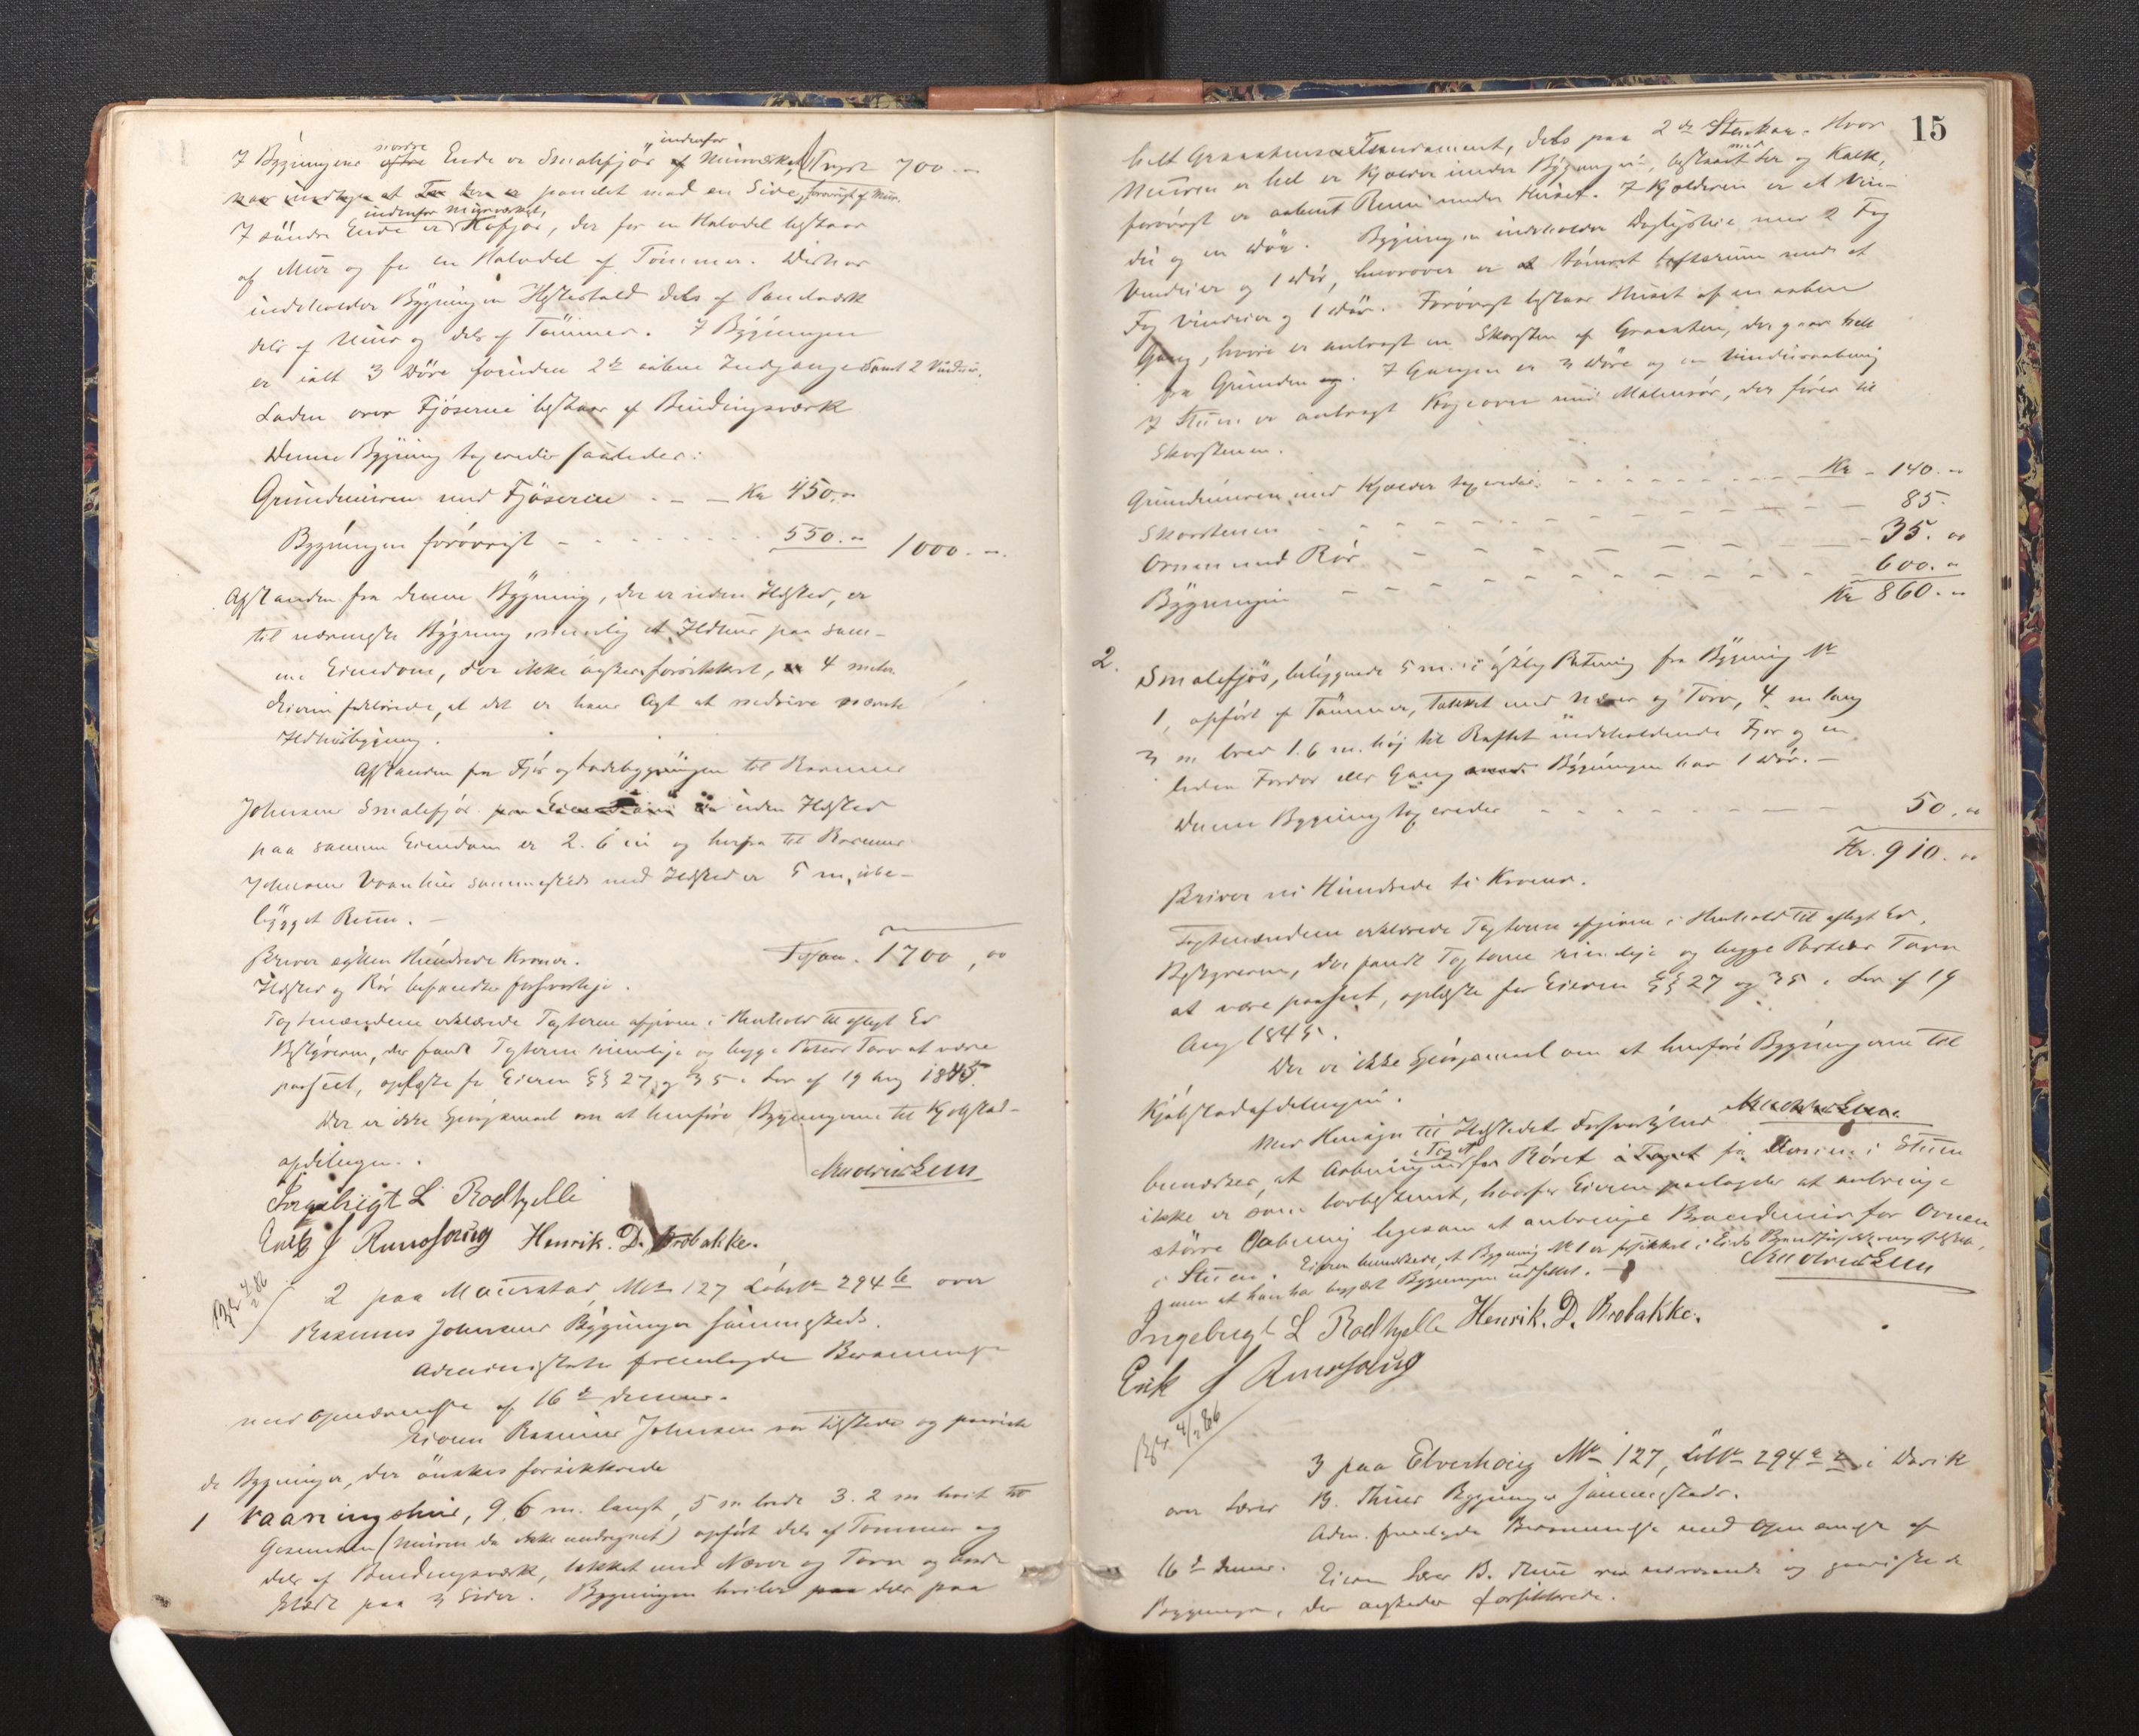 I Bygningens nordre Ende er Smalefjøs indenfor Murværket, Trpt 700 . "
panelet med en Side, forøvrigt af Mur.
I søndre Ende er indenfor Murværket Kofjøs, der for en Halvdel bestaar
af Mur og for en Halvdel af Tømmer. Desuden
indeholder Bygningen Hestestald dels af Panelværk
dels af Mur og dels af Tømmer. I Bygningen
er ialt 3 Døre foruden 2de aabne Indgange samt 2 Vinduer.
Laden over Fjøsene bestaar af Bindingsværk
Denne Bygning taxeredes saaledes:
Grundmuren med Fjøsene - - - Kr 450. "
Bygningen forøvrigt - - - - - 550. " 1000. "
Afstanden fra denne Bygning, der er uden Ildsted, er
til nærmeste Bygning, nemlig et Ildhus paa sam-
me Eiendom, der ikke ønskes forsikkret, 4 meter.
Eieren forklarede, at det er hans Agt at nedrive nævnte
Ildhusbygning.
Afstanden fra Fjøs og Ladebygningen til Rasmus
Johnsens Smalefjøs uden Ildsted
paa samme Eiendom er 2.6 m og herfra til Rasmus
Johnsens Vaanhus sammesteds med Ildsted er 5 m, ube-
bygget Rum. -
Skriver sytten Hundrede Kroner. Tilsam. 1700, 00
Ildsted og Rør befandtes forsvarlige.
Taxtmændene erklærede Taxterne afgivne i Henhold til aflagt Ed
Bestyreren, der fandt Taxterne rimelige og begge Parters Tarv at være
paaseet, oplæste for Eieren §§ 27 og 35 i Lov af 19 Aug 1845.
Der er ikke Spørgsmaal om at henføre Bygningerne til Kjøbstad-
afdelingen.
Ingebrigt L Rodhjelle
Erik J Henrik. D. Brobakke.
4/2 86
2 paa Maurstad, Mno 127 Løbno 294 b over
Rasmus Johnsens Bygninger sammesteds.
Administrator fremlagde Berammelse
med Opnævnelse af 16de dennes.
Eieren Rasmus Johnsen var tilstede og paaviste
de Bygninger, der ønskes forsikkrede
1 Vaaningshus, 9.6 m. langt, 5 m brede 3.2 m høit til
Gesimsen (Muren da ikke medregnet) opført dels af Tømmer og
dels af Bindingsværk, tækket med Næver og Torv og bord-
klædt paa 3 Sider. Bygningen hviler dels paa
15
helt Graastens Fundament, dels paa 2de Stenkar. Hvor
Muren er hel er Kjælder under Bygningen, bestaaet med Ler og Kalk,
forøvrigt er aabent Rum under Huset. I Kjælderen er et Vin-
du og en Dør. Bygningen indeholder Dagligstue med 2 Fag
Vinduer og 1 Dør, hvorover er tømret Loftsrum med et
Fag Vinduer og 1 Dør. Forøvrigt bestaar Huset af en aaben
Gang, hvori er anbragt en Skorsten af Graasten, der gaar helt
fra Grunden. I Gangen er 3 Døre og en Vinduesaabning
I Stuen er anbragt Kogeovn med Malmrør, der fører til
Skorstenen.
Grundmuren med Kjælder taxeredes - - - - Kr - 140. "
Skorstenen - - - - 85.
Ovnen med Rør - - - - 35. 00
Bygningen - - - - 600. "
Kr 860. "
2. Smalefjøs, beliggende 5 m. i østlig Retning fra Bygning No
1, opført af Tømmer, tækket med Næver og Torv, 4 m lang
3 m bred 1.6 m. høj til Raftet indeholdende Fjøs og en
liden Fordør eller Gang Bygningen har 1 Dør. -
Denne Bygning taxeredes - - - - 50. 00
Kr. 910. 00
Skriver ni Hundrede ti Kroner.
Taxtmændene erklærede Taxterne afgivne i Henhold til aflagt Ed.
Bestyreren, der fandt Taxterne rimelige og begge Parters Tarv
at være paaseet, oplæste for Eieren §§ 27 og 35 i Lov af 19
Aug 1845.
Der er ikke Spørgsmaal om at henføre Bygningerne til
Kjøbstadafdelingen.
Med Hensyn til Ildstedets Forsvarlighed
bemærkes, at Aabningen i Taget for Røret fra Ovnen i Stuen
ikke er som lovbestemt, hvorfor Eieren paalagdes at anbringe
større Aabning ligesom at anbringe Brandmur for Ovnen
i Stuen. Eieren bemærkede, at Bygning No 1 er forsikkret i
men at han har begjært Bygningen udslettet. -
Ingebrigt L Rodhjelle Henrik. D. Brobakke.
Erik J
4/2 86
3 paa Elverhøig Mno 127, Løbno 294 i Davik
over Lærer B. Thues Bygninger sammesteds.
Adm. fremlagde Berammelse med Opnævnelse af
16de dennes. Eieren Lærer B. Thue var nærværende og paaviste de
Bygninger, der ønskedes forsikkrede.